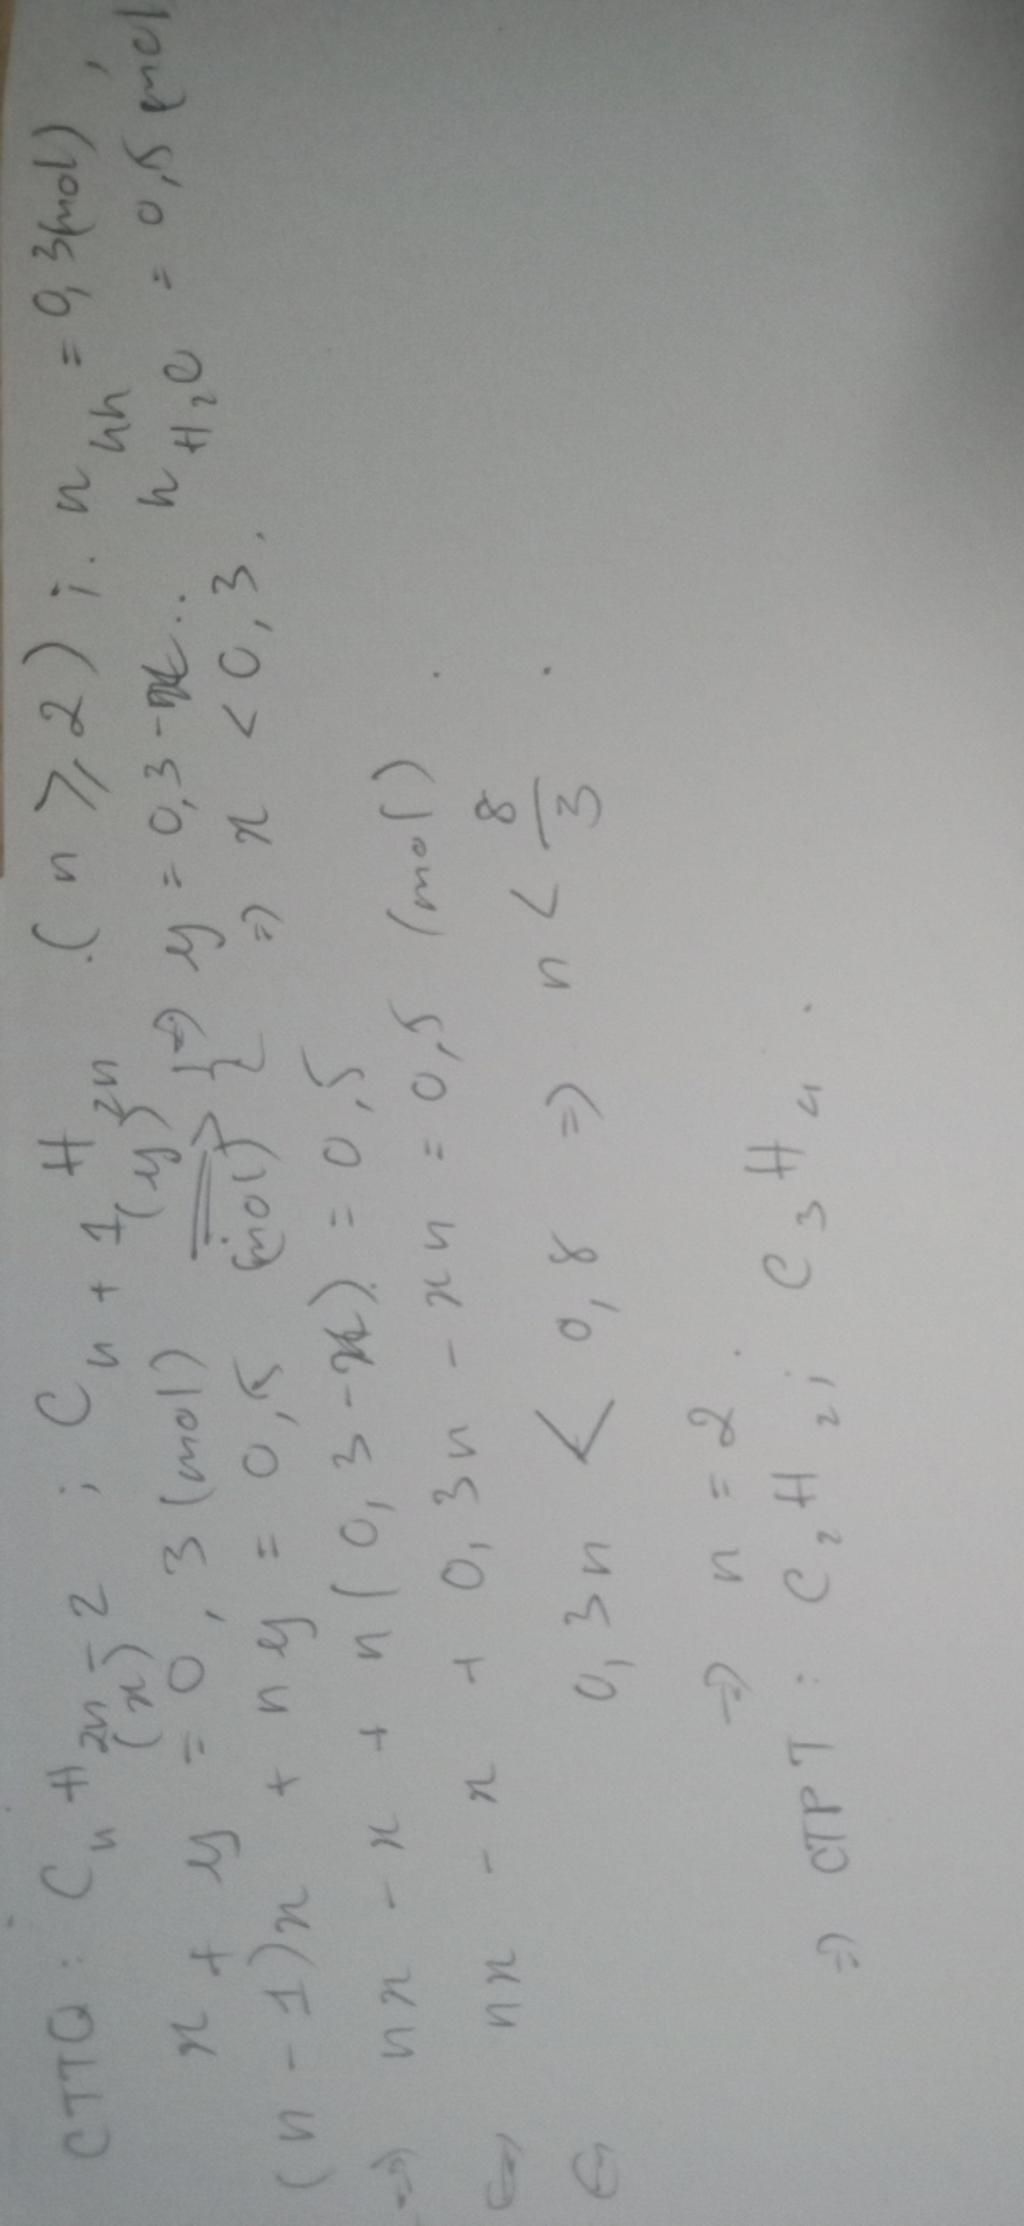 CTTQ : CnH2n-2 ; Cn+1H2n (n ⩾ 2) ; nhh = 0,3(mol),
(x) (y)
x + y = 0,3 (mol) => y = 0,3 - x. nH2O = 0,5 mol
(n - 1)x + ny = 0,5 (mol) => x < 0,3.
=> nx - x + n(0,3 - x) = 0,5
<=> nx - x + 0,3n - xn = 0,5 (mol).
<=> 0,3n < 0,8 => n < 8/3.
=> n = 2.
=> CTPT : C2H2; C3H4.